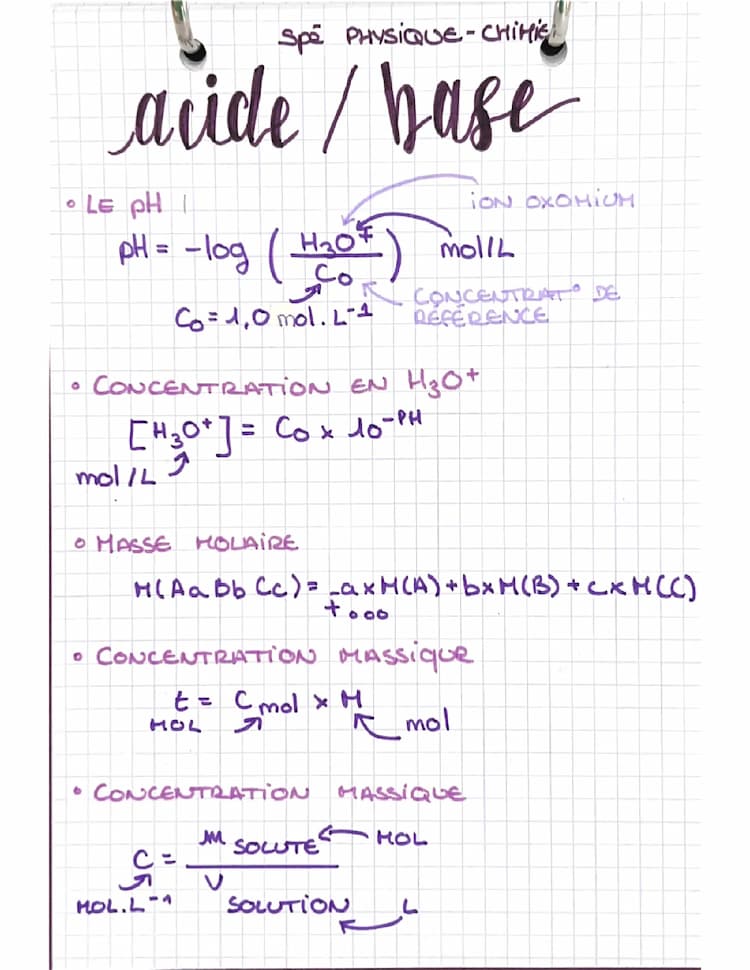 Spé PHYSIQUE-CHIMIE
acide / base
• LE pH
ION OXOMIUM
pH = -log ( H3O+ / Co ) mol/L
Co = 1,0 mol. L-1
CONCENTRAT° DE RÉFÉRENCE
• CONCENTRATION EN H3O+
[H3O+] = Co x 10-PH
mol/L
• MASSE MOLAIRE
M(AaBbCc) = a x M(A) + b x M(B) + c x M(C)
+ ...
• CONCENTRATION MASSIQUE
t = Cmol x M
MOL
mol
• CONCENTRATION MASSIQUE
C = m SOLUTE / V SOLUTION
MOL
MOL.L-1
L